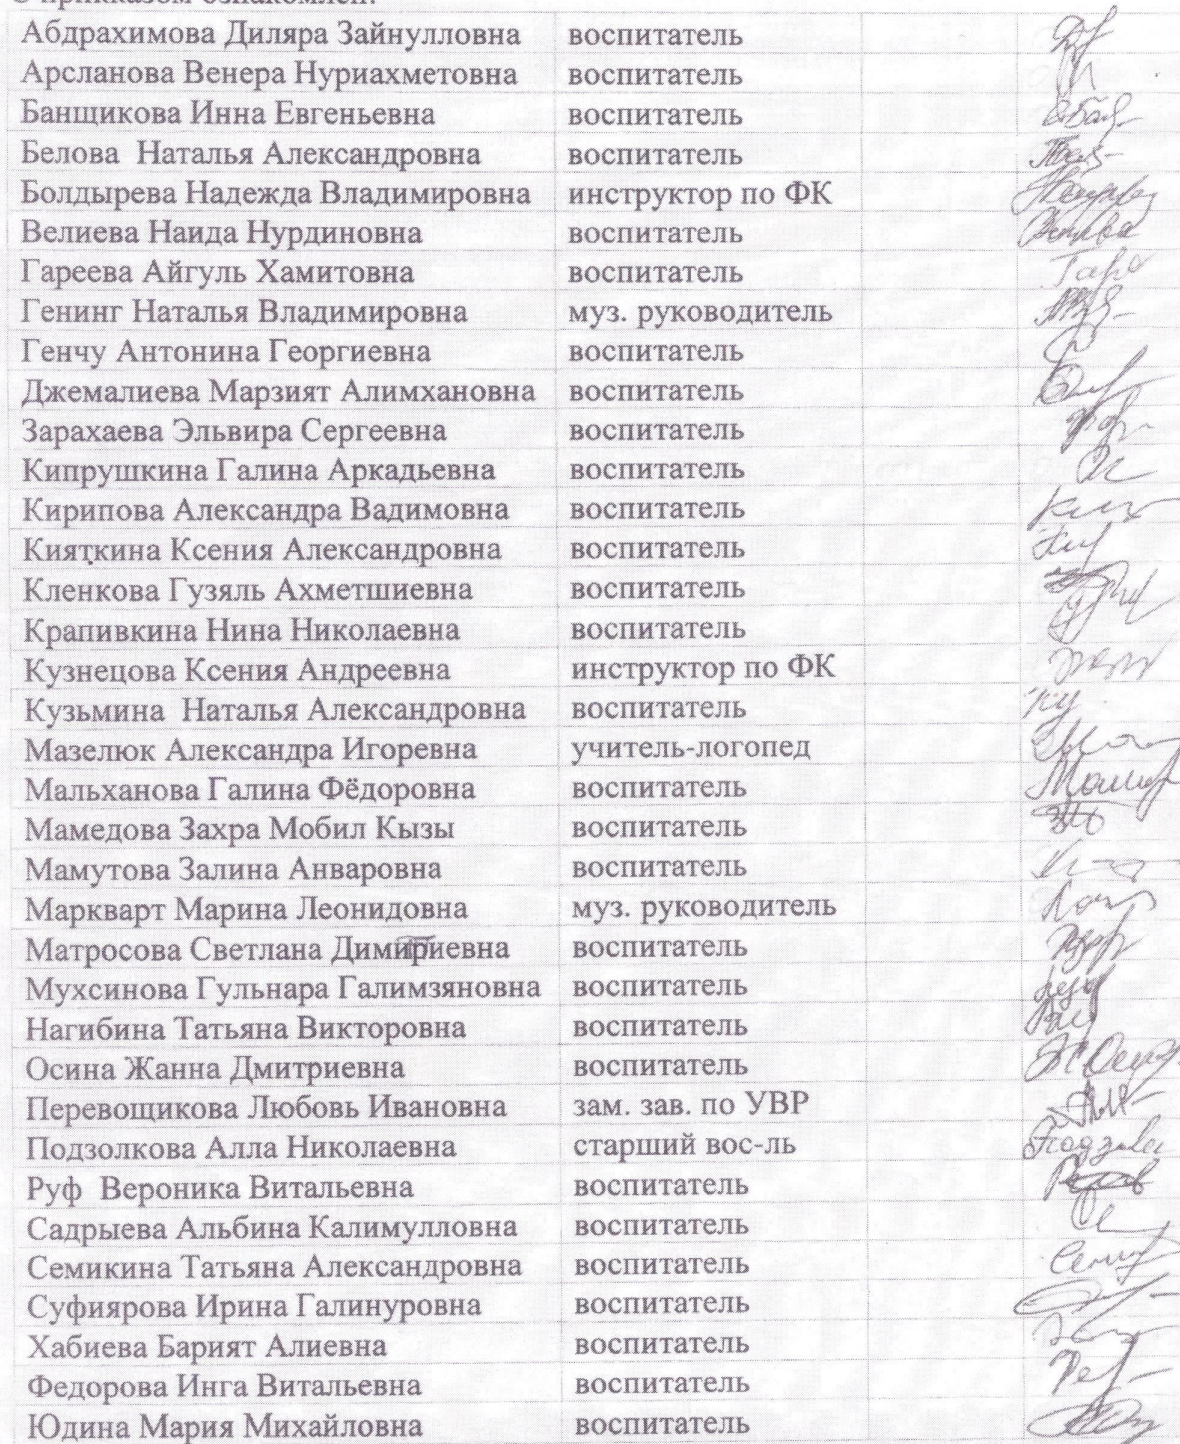 С приказом ознакомлен:
Абдрахимова Диляра Зайнулловна воспитатель
Арсланова Венера Нуриахметовна воспитатель
Банщикова Инна Евгеньевна воспитатель
Белова Наталья Александровна воспитатель
Болдырева Надежда Владимировна инструктор по ФК
Велиева Наида Нурдиновна воспитатель
Гареева Айгуль Хамитовна воспитатель
Генинг Наталья Владимировна муз. руководитель
Генчу Антонина Георгиевна воспитатель
Джемалиева Марзият Алимхановна воспитатель
Зарахаева Эльвира Сергеевна воспитатель
Кипрушкина Галина Аркадьевна воспитатель
Кирипова Александра Вадимовна воспитатель
Кияткина Ксения Александровна воспитатель
Кленкова Гузяль Ахметшиевна воспитатель
Крапивкина Нина Николаевна воспитатель
Кузнецова Ксения Андреевна инструктор по ФК
Кузьмина Наталья Александровна воспитатель
Мазелюк Александра Игоревна учитель-логопед
Мальханова Галина Фёдоровна воспитатель
Мамедова Захра Мобил Кызы воспитатель
Мамутова Залина Анваровна воспитатель
Маркварт Марина Леонидовна муз. руководитель
Матросова Светлана воспитатель
Мухсинова Гульнара Галимзяновна воспитатель
Нагибина Татьяна Викторовна воспитатель
Осина Жанна Дмитриевна воспитатель
Перевощикова Любовь Ивановна зам. зав. по УВР
Подзолкова Алла Николаевна старший вос-ль
Руф Вероника Витальевна воспитатель
Садрыева Альбина Калимулловна воспитатель
Семикина Татьяна Александровна воспитатель
Суфиярова Ирина Галинуровна воспитатель
Хабиева Барият Алиевна воспитатель
Федорова Инга Витальевна воспитатель
Юдина Мария Михайловна воспитатель